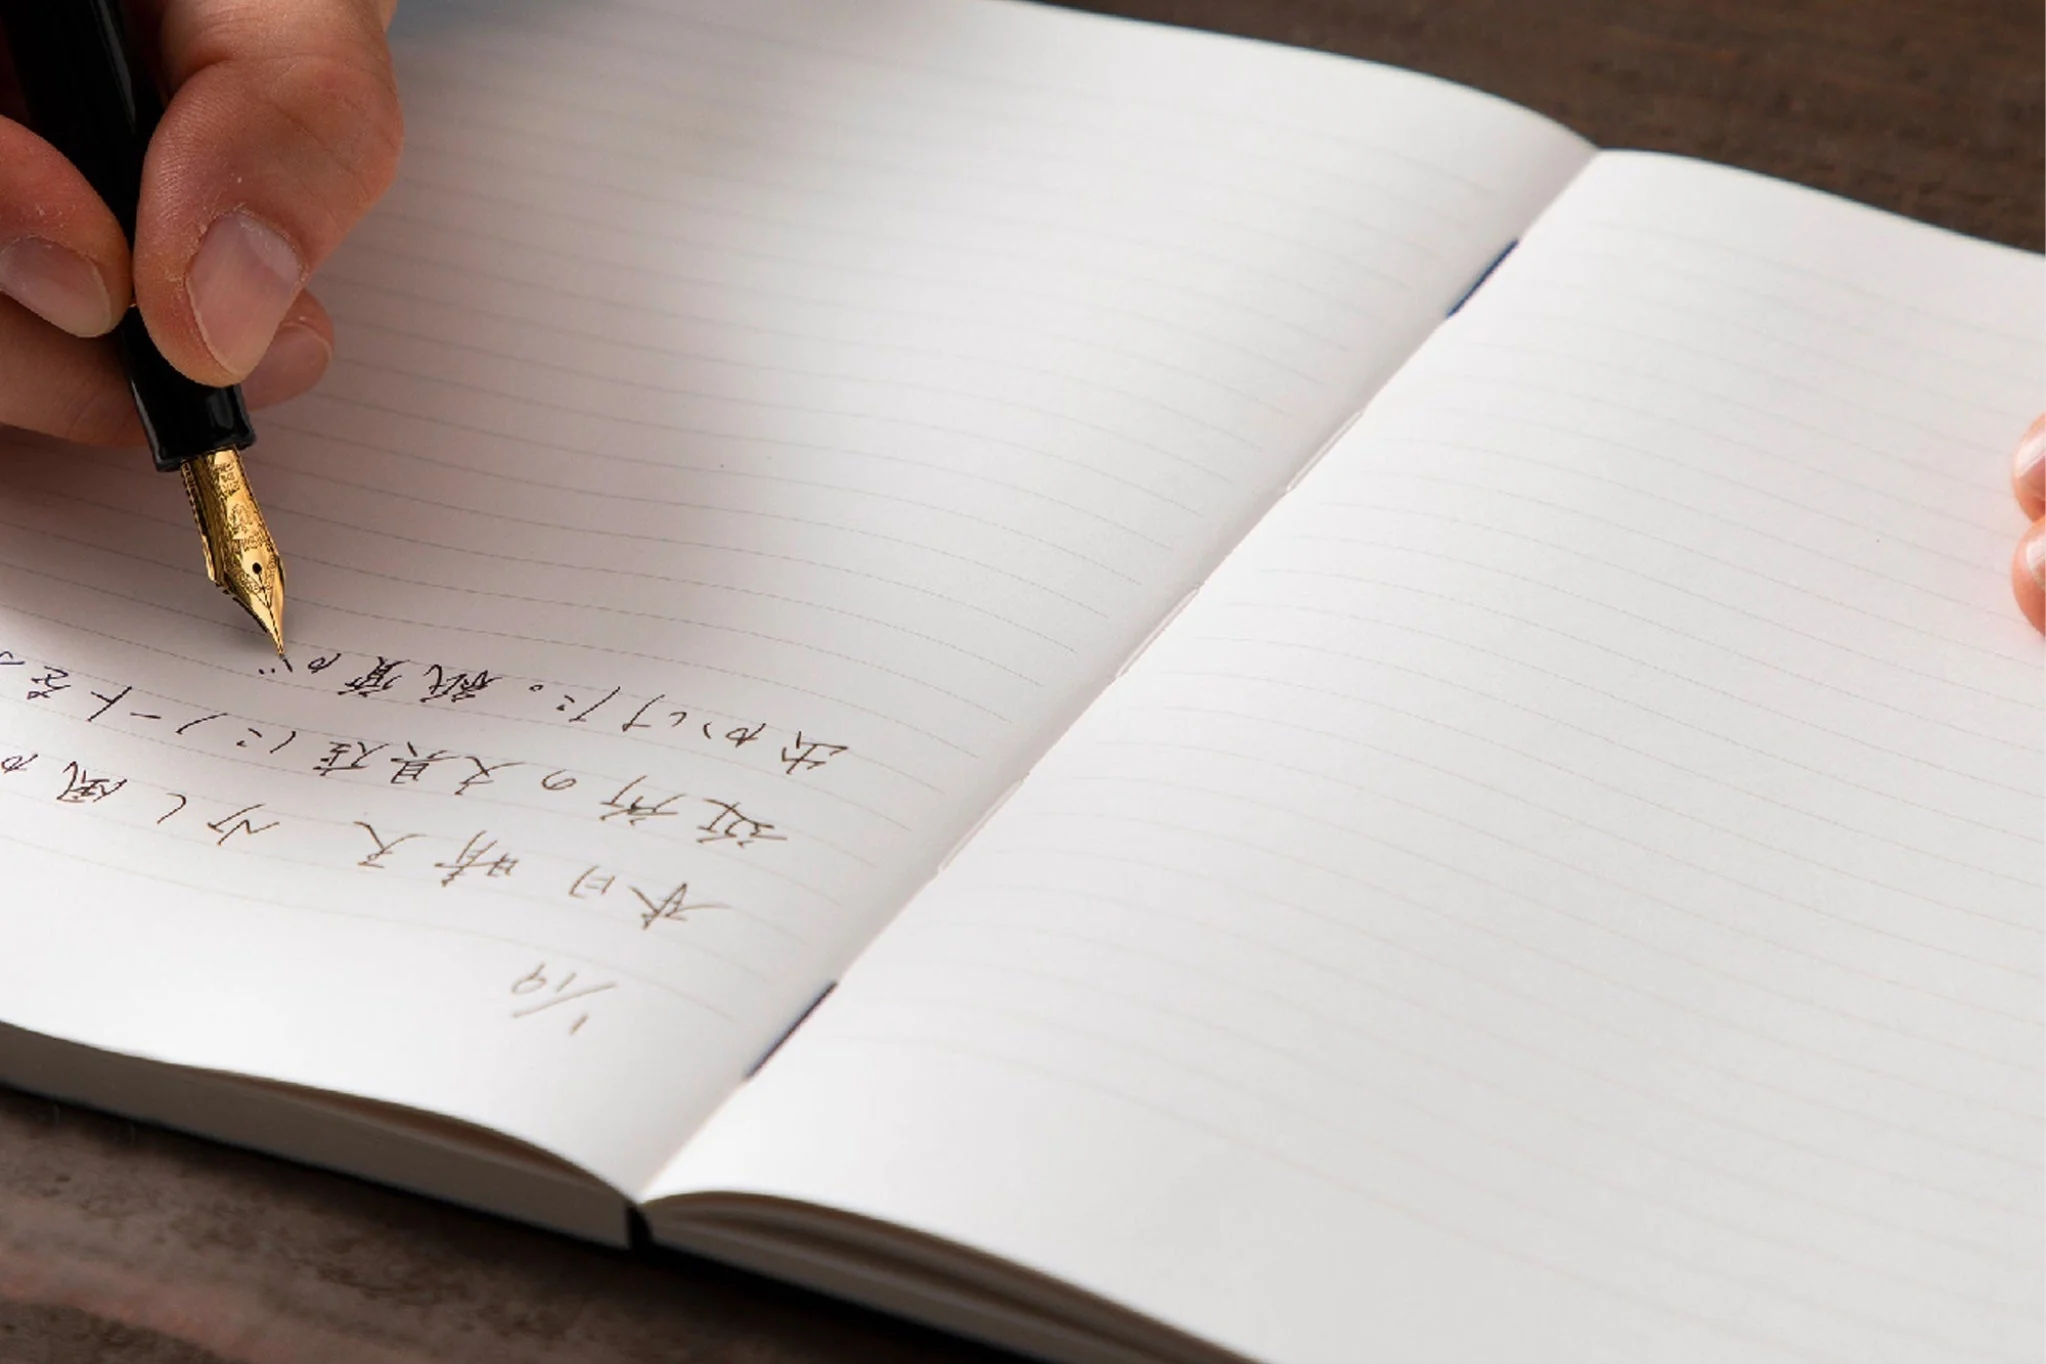 1/19
本日晴天 少し風が
近所の文具店にノートを
出かけた。紙質が